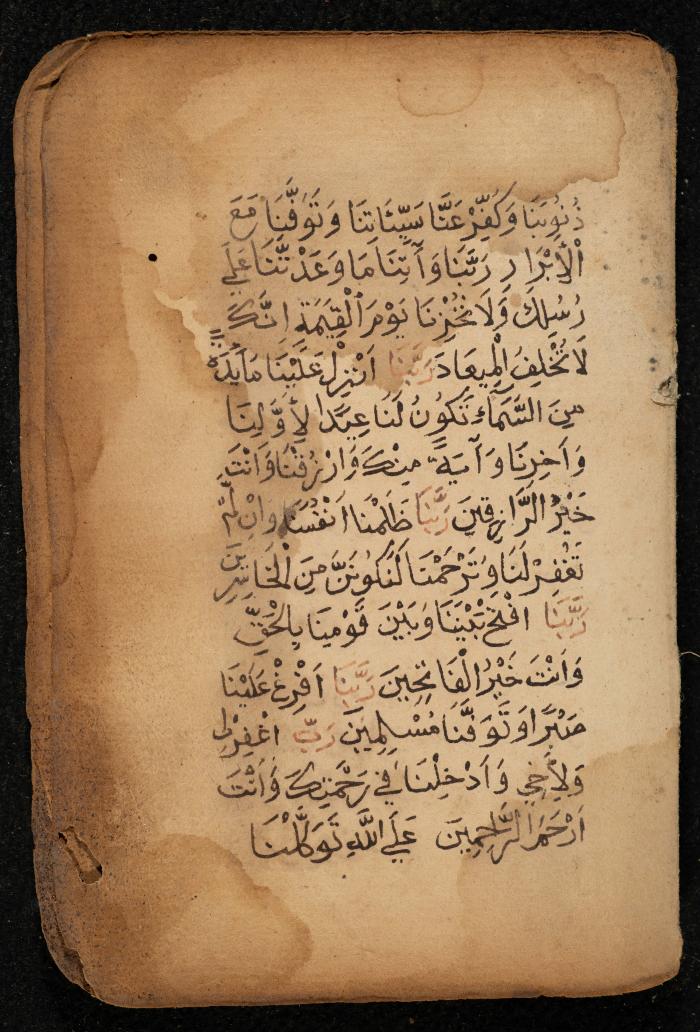 ذُنُوبَنَا وَكَفِّرْ عَنَّا سَيِّئَاتِنَا وَتَوَفَّنَا مَعَ
الْأَبْرَارِ رَبَّنَا وَآتِنَا مَا وَعَدْتَّنَا عَلَى
رُسُلِكَ وَلَا تُخْزِنَا يَوْمَ الْقِيَمَةِ اِنَّكَ
لَا تُخْلِفُ الْمِيعَادَ رَبَّنَا اَنْزِلْ عَلَيْنَا مَآئِدَةً
مِنَ السَّمَآءِ تَكُونُ لَنَا عِيدًا لِأَوَّلِنَا
وَآخِرِنَا وَآيَةً مِنْكَ وَارْزُقْنَا وَاَنْتَ
خَيْرُ الرَّازِقِينَ رَبَّنَا ظَلَمْنَا اَنْفُسَنَا وَاِنْ لَمْ
تَغْفِرْ لَنَا وَتَرْحَمْنَا لَنَكُونَنَّ مِنَ الْخَاسِرِينَ
رَبَّنَا افْتَحْ بَيْنَنَا وَبَيْنَ قَوْمِنَا بِالْحَقِّ
وَاَنْتَ خَيْرُ الْفَاتِحِينَ رَبَّنَا اَفْرِغْ عَلَيْنَا
صَبْرًا وَتَوَفَّنَا مُسْلِمِينَ رَبِّ اغْفِرْلِى
وَلِأَخِي وَاَدْخِلْنَا فِي رَحْمَتِكَ وَاَنْتَ
اَرْحَمُ الرَّاحِمِينَ عَلَى اللَّهِ تَوَكَّلْنَا